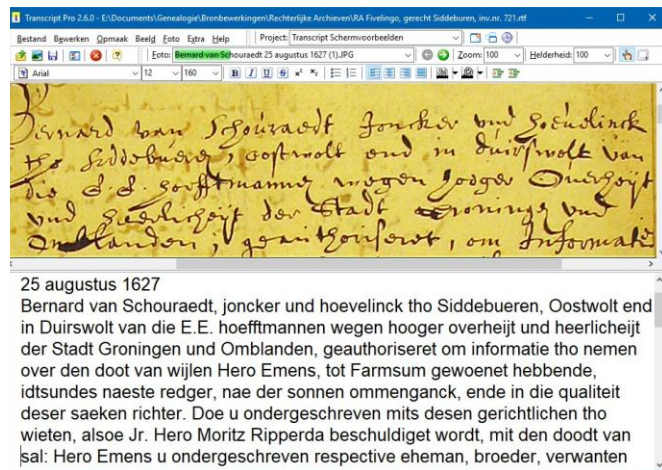 Transcript Pro 2.6.0 - E:\Documents\Genealogie\Bronbewerkingen\Rechterlijke Archieven\RA Fivelingo, gerecht Siddeburen, inv.nr. 721.rtf
Bestand Bewerken Opmaak Beeld Foto Extra Help Project: Transcript Schermvoorbeelden
Foto: Bernard van Schouraedt 25 augustus 1627 (1).JPG Zoom: 100 Helderheid: 100
Arial 12 160 B I U x² x₂
Bernard van Schouraedt Joncker und hoevelinck
tho Siddebueren, oostwolt end in duirswolt van
die E. E. hoefftmannen wegen hooger Overheijt
und heerlicheijt der Stadt Groningen und
Omblanden, geauthoriseret, om Informatie
25 augustus 1627
Bernard van Schouraedt, joncker und hoevelinck tho Siddebueren, Oostwolt end
in Duirswolt van die E.E. hoefftmannen wegen hooger overheijt und heerlicheijt
der Stadt Groningen und Omblanden, geauthoriseret om informatie tho nemen
over den doot van wijlen Hero Emens, tot Farmsum gewoenet hebbende,
idtsundes naeste redger, nae der sonnen ommenganck, ende in die qualiteit
deser saeken richter. Doe u ondergeschreven mits desen gerichtlichen tho
wieten, alsoe Jr. Hero Moritz Ripperda beschuldiget wordt, mit den doodt van
sal: Hero Emens u ondergeschreven respective eheman, broeder, verwanten